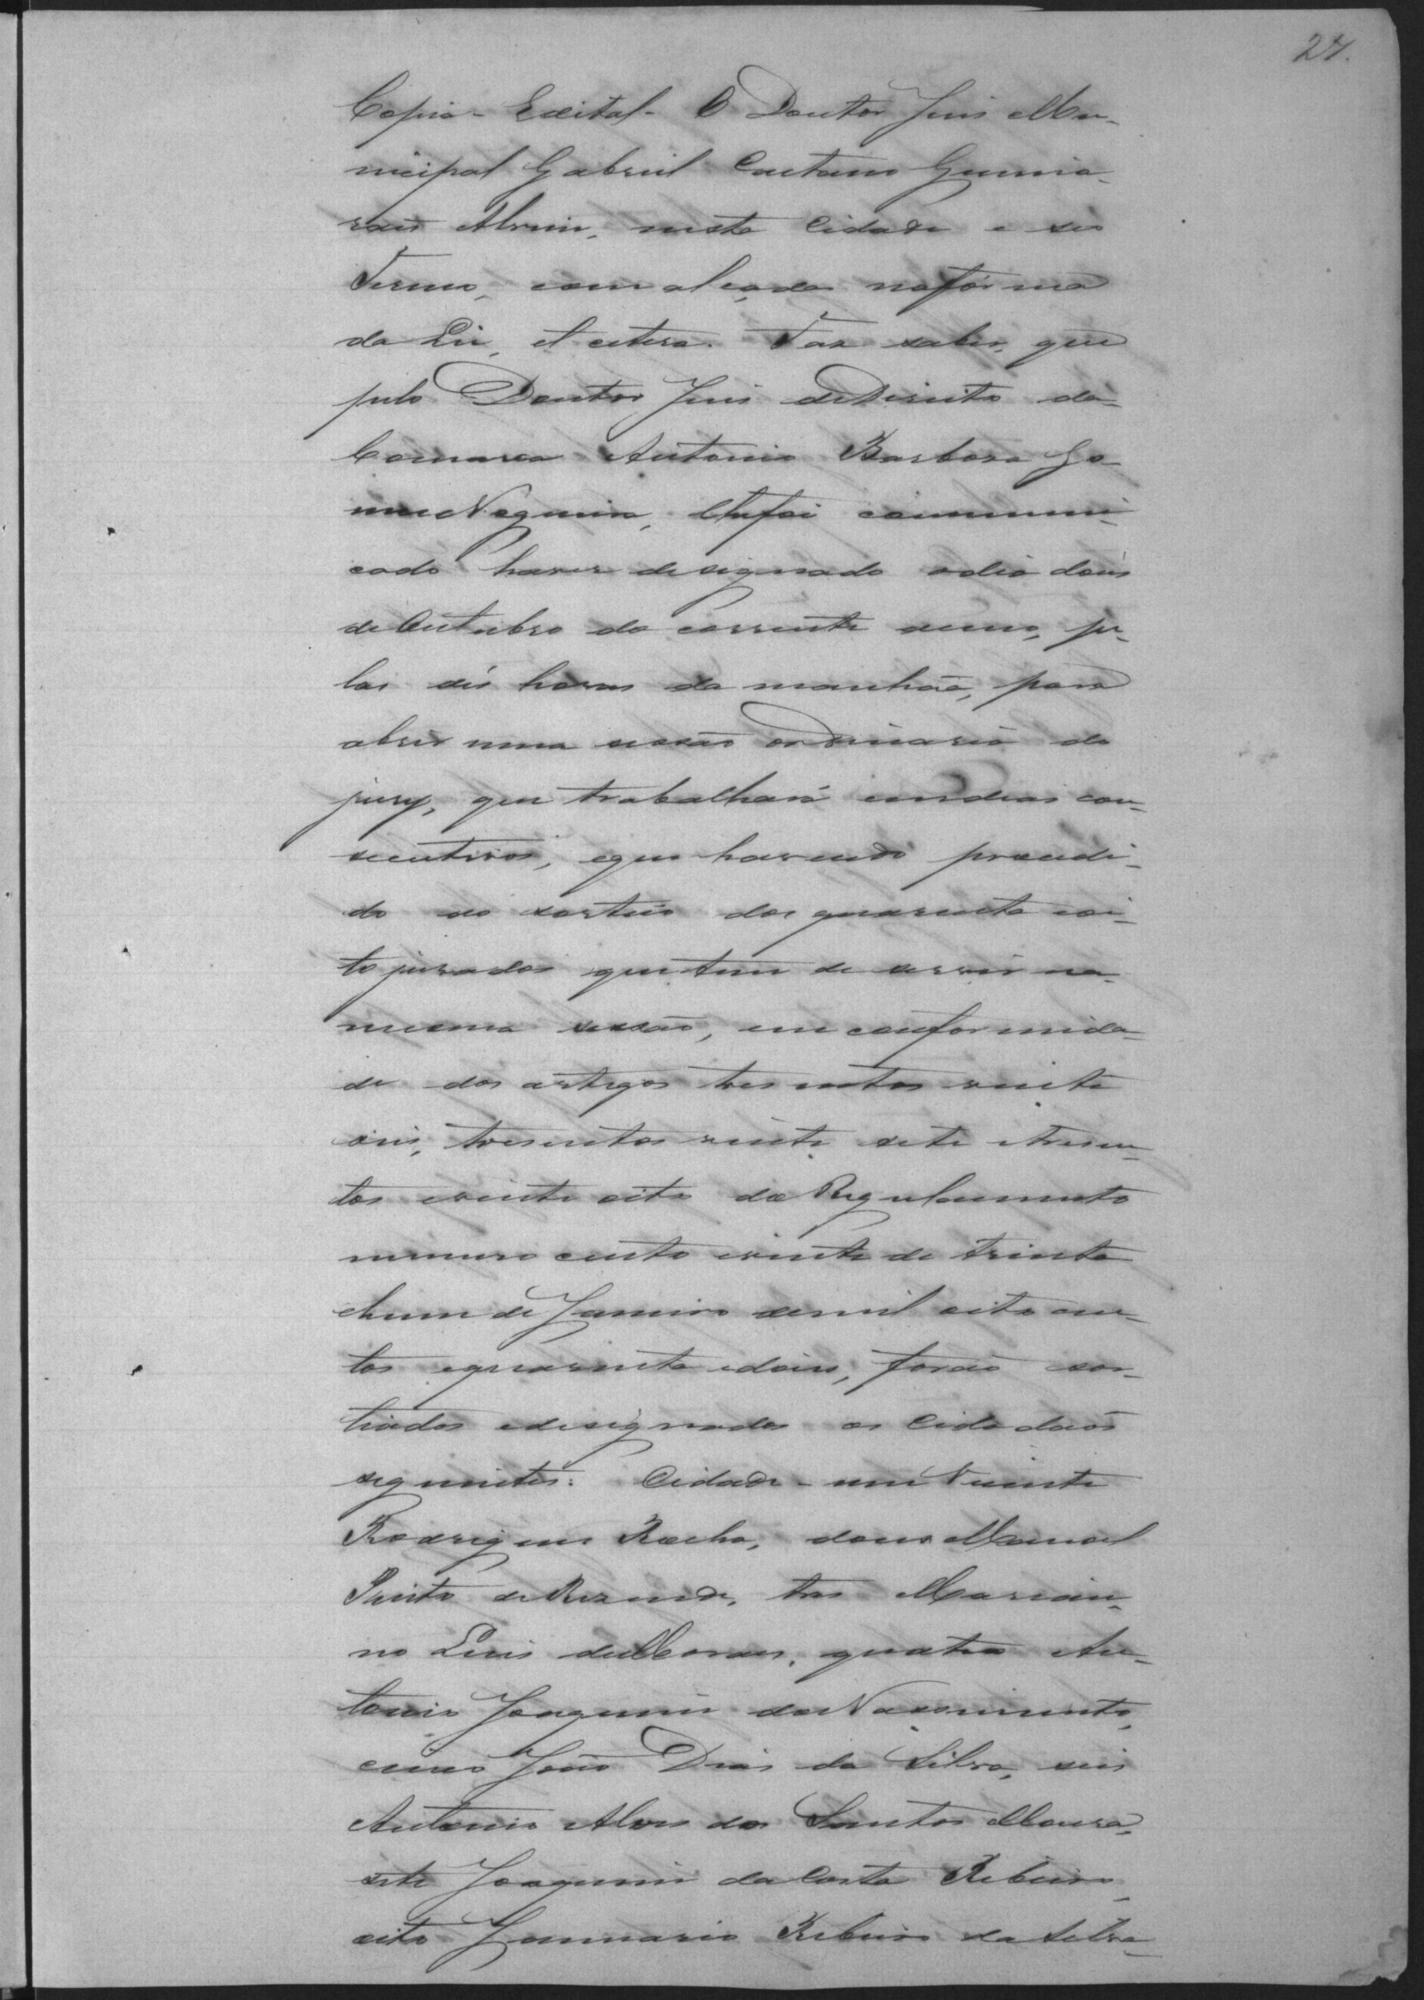 27.
Copia - Edital - O Doutor Juis Mu-
nicipal Gabriel Caetano Guima-
raes Alvim, nesta Cidade e seo
Termo, com alçada na fórma
da Lei, et cetera. Faz saber, que
pelo Doutor Juis de Direito da
Comarca Antonio Barbosa Go-
mes Nogueira, lhe foi communi-
cado haver designado o dia dous
de Outubro do corrente anno, pe-
las dés horas da manhaã, para
abrir uma sessão ordinaria do
jury, que trabalhará em dias con-
secutivos, e que havendo procedi-
do ao sorteio dos quarenta e oi-
to jurados que tem de servir na
mesma sessão, em conformida-
de dos artigos tresentos vinte
seis, tresentos vinte sete e tresen-
tos e vinte oito do Regulamento
numero cento e vinte de trinta
e hum de Janeiro de mil oito cen-
tos e quarenta e dois, forão sor-
tiados e designados os Cidadaõs
seguintes: Cidade - um Vicente
Rodrigues Rocha, dous Manoel
Pinto de Rezende, tres Marian-
no Luis de Moraes, quatro An-
tonio Joaquim do Nascimento,
cinco João Dias da Silva, seis
Antonio Alves dos Santos Moura,
sete Joaquim da Costa Ribeiro,
oito Januario Ribeiro da Silva